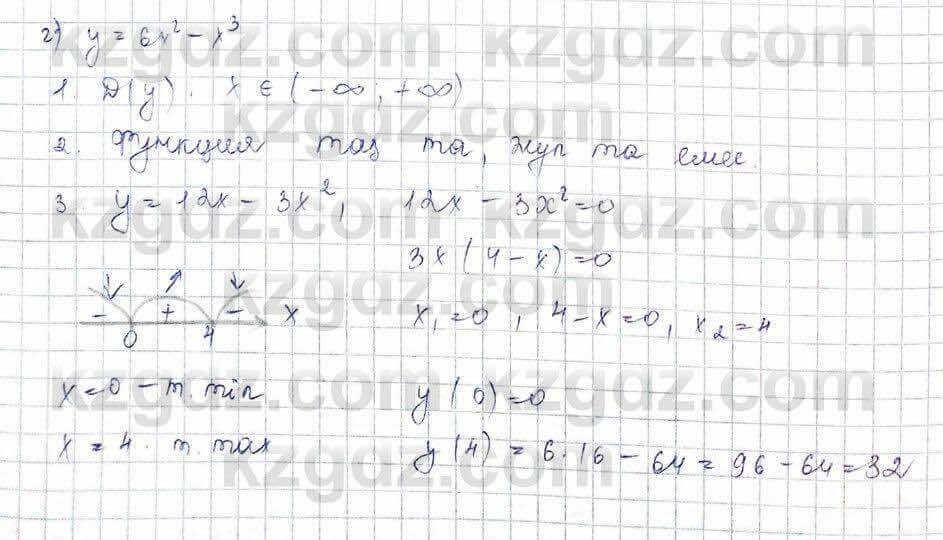 г) y = 6x² - x³
1. D(y). x ∈ (-∞; +∞)
2. Функция тақ та, жұп та емес.
3. y = 12x - 3x², 12x - 3x² = 0
3x(4 - x) = 0
- + - x
0 4
x₁ = 0, 4 - x = 0, x₂ = 4
x = 0 - т. min y(0) = 0
x = 4. т. max y(4) = 6·16 - 64 = 96 - 64 = 32
kzgdz.com